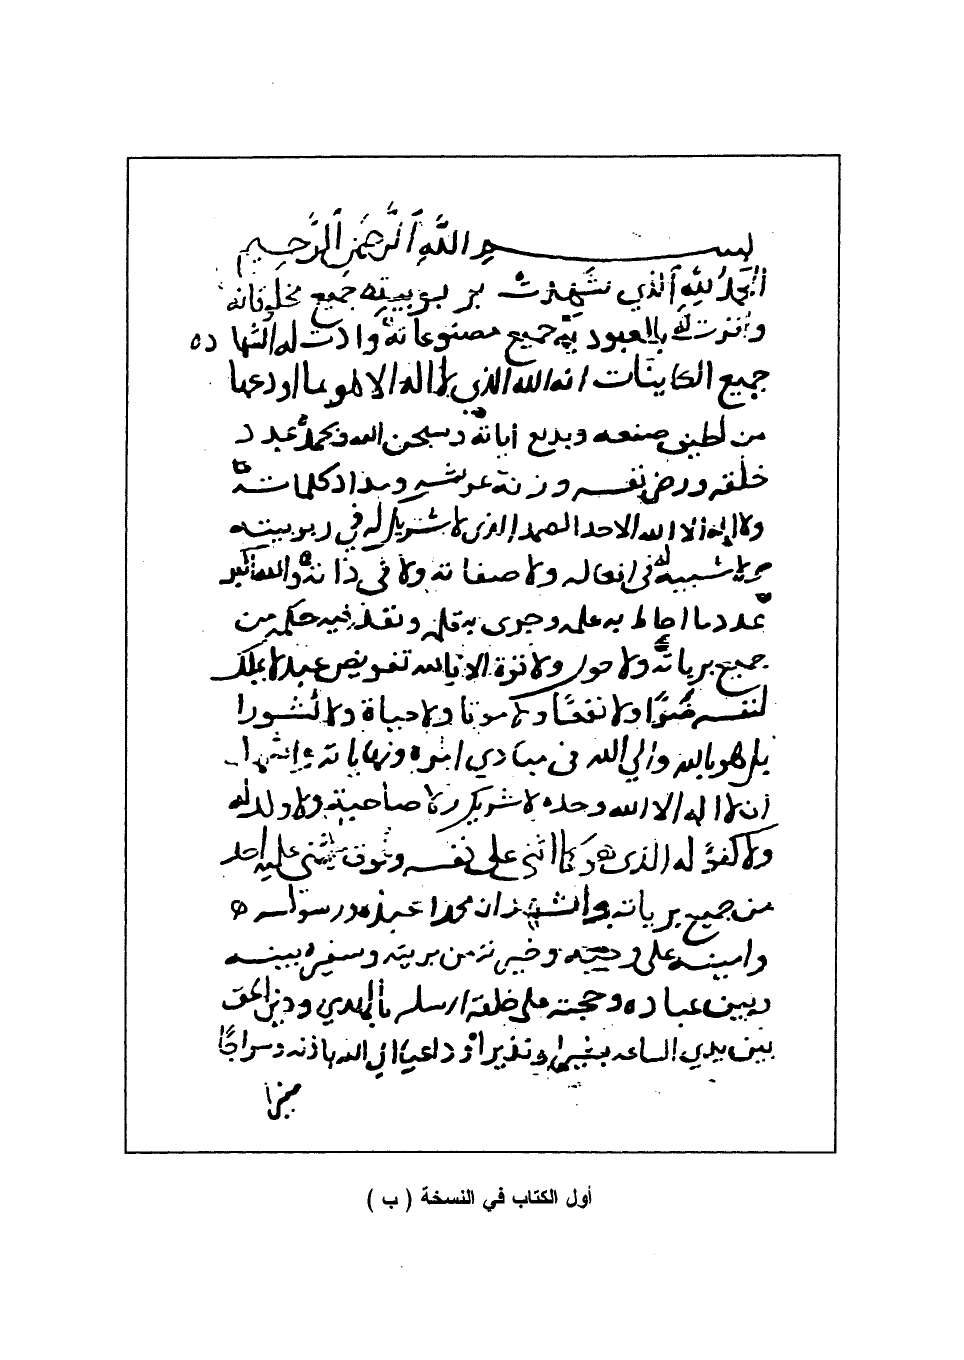 بسم اللَّهِ ٱلرَّحْمَنِ ٱلرَّحِيم
الحمدُ لِلَّهِ ٱلذي شَهِدَت بربوبيته جميع مخلوقاته
واقرت له بالعبودية جميع مصنوعاته وادت له الشهادة
جميع الكاينات انه الله الذي لا اله الا هو بما اودعها
من لطيف صنعه وبديع اياته وسبحن الله وبحمده عدد
خلقه ورضى نفسه وزنة عرشه ومداد كلماته
ولا إله الا الله الاحد الصمد الذي لا شريك له في ربوبيته
ولا شبيه له في افعاله ولا صفاته ولا في ذاته والله اكبر
عدد ما احاط به علمه وجرى به قلمه ونفذ فيه حكمه من
جميع برياته ولا حول ولا قوة الا بالله تفويض عبد لا يملك
لنفسه ضرًّا ولا نفعًا ولا موتا ولا حياة ولا نشورا
بل هو بالله والي الله في مبادي امره ونهاياته واشهد
أن لا اله الا الله وحده لا شريك له ولا صاحبة ولا ولد له
ولا كفؤ له الذي هو كما اثنى على نفسه وفوق ما يثني عليه احد
من جميع برياته واشهد ان محمدا عبده ورسوله
وامينه على وحيه وخيرته من بريته وسفيره بينه
وبين عباده وحجته على خلقه ارسله بالهدي ودين الحق
بين يدي الساعه بشيرا ونذيرا وداعيا الي الله باذنه وسراجًا
منيرا
أول الكتاب في النسخة ( ب )